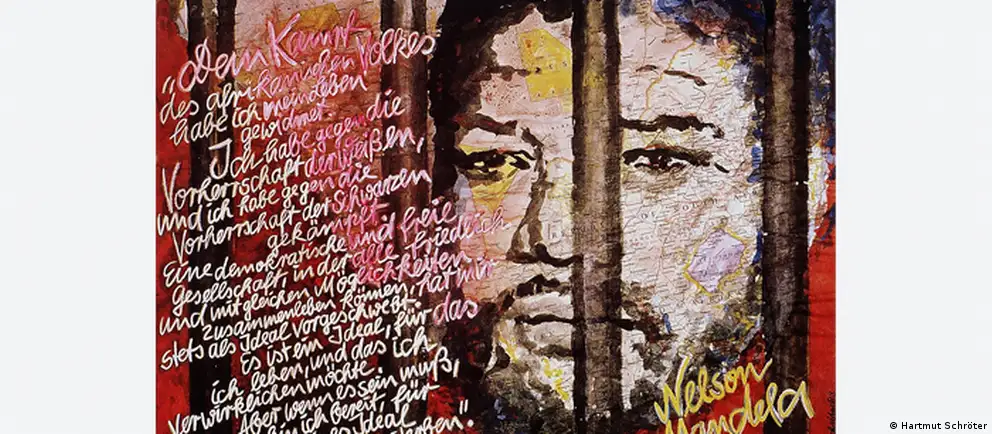 "Dem Kampf
des afrikanischen Volkes
habe ich mein Leben
gewidmet.
Ich habe gegen die
Vorherrschaft der Weißen,
und ich habe gegen die
Vorherrschaft der Schwarzen
gekämpft
Eine demokratische und freie
Gesellschaft, in der alle friedlich
und mit gleichen Möglichkeiten
zusammenleben können, hat mir
stets als Ideal vorgeschwebt.
Es ist ein Ideal, für das
ich leben, und das ich
verwirklichen möchte.
Aber wenn es sein muß,
bin ich bereit für
Ideal
sterben."
Nelson
Mandela
© Hartmut Schröter